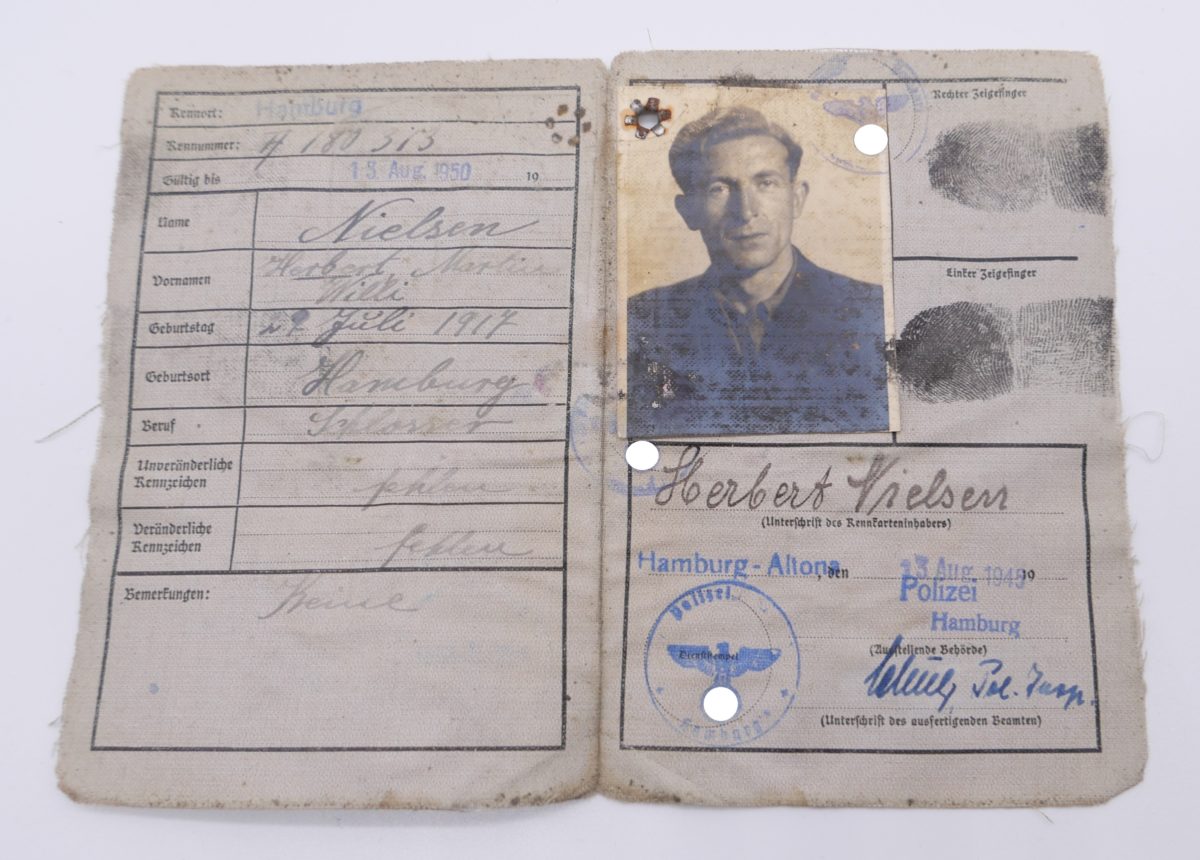 Kennort: Hamburg
Kennummer: A 180 313
Gültig bis 13 Aug. 1950 19
Name Nielsen
Vornamen Herbert, Martin
Willi
Geburtstag 29 Juli 1917
Geburtsort Hamburg
Beruf Schlosser
Unveränderliche
Kennzeichen fehlen
Veränderliche
Kennzeichen fehlen
Bemerkungen: Keine
Rechter Zeigefinger
Linker Zeigefinger
Herbert Nielsen
(Unterschrift des Kennkarteninhabers)
Hamburg-Altona, den 13 Aug. 1945 19
Polizei
Hamburg
(Ausstellende Behörde)
Polizei
Dienststempel
Hamburg
Pol. Insp.
(Unterschrift des ausfertigenden Beamten)